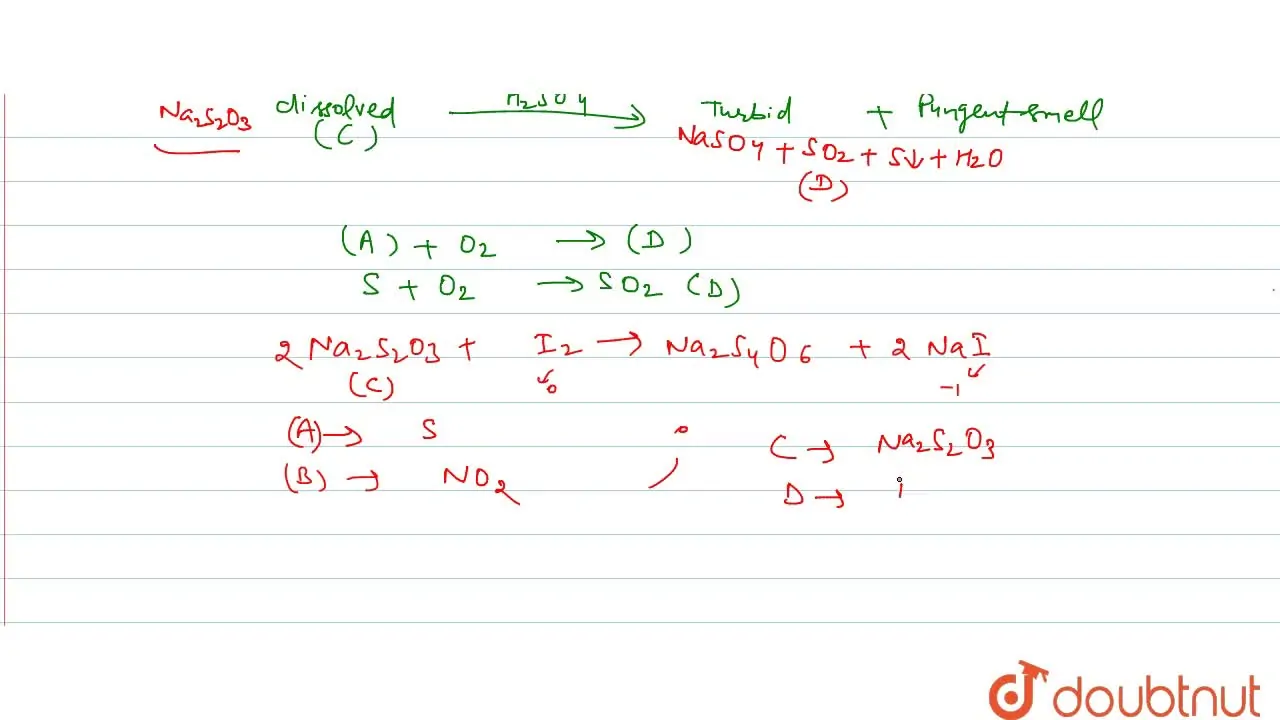 Na2S2O3 dissolved H2SO4 Turbid + Pungent smell
(C) NaSO4 + SO2 + S↓ + H2O
(D)
(A) + O2 → (D)
S + O2 → SO2 (D)
2 Na2S2O3 + I2 → Na2S4O6 + 2 NaI
(C) 0 -1
(A) → S C → Na2S2O3
(B) → NO2 D →
doubtnut